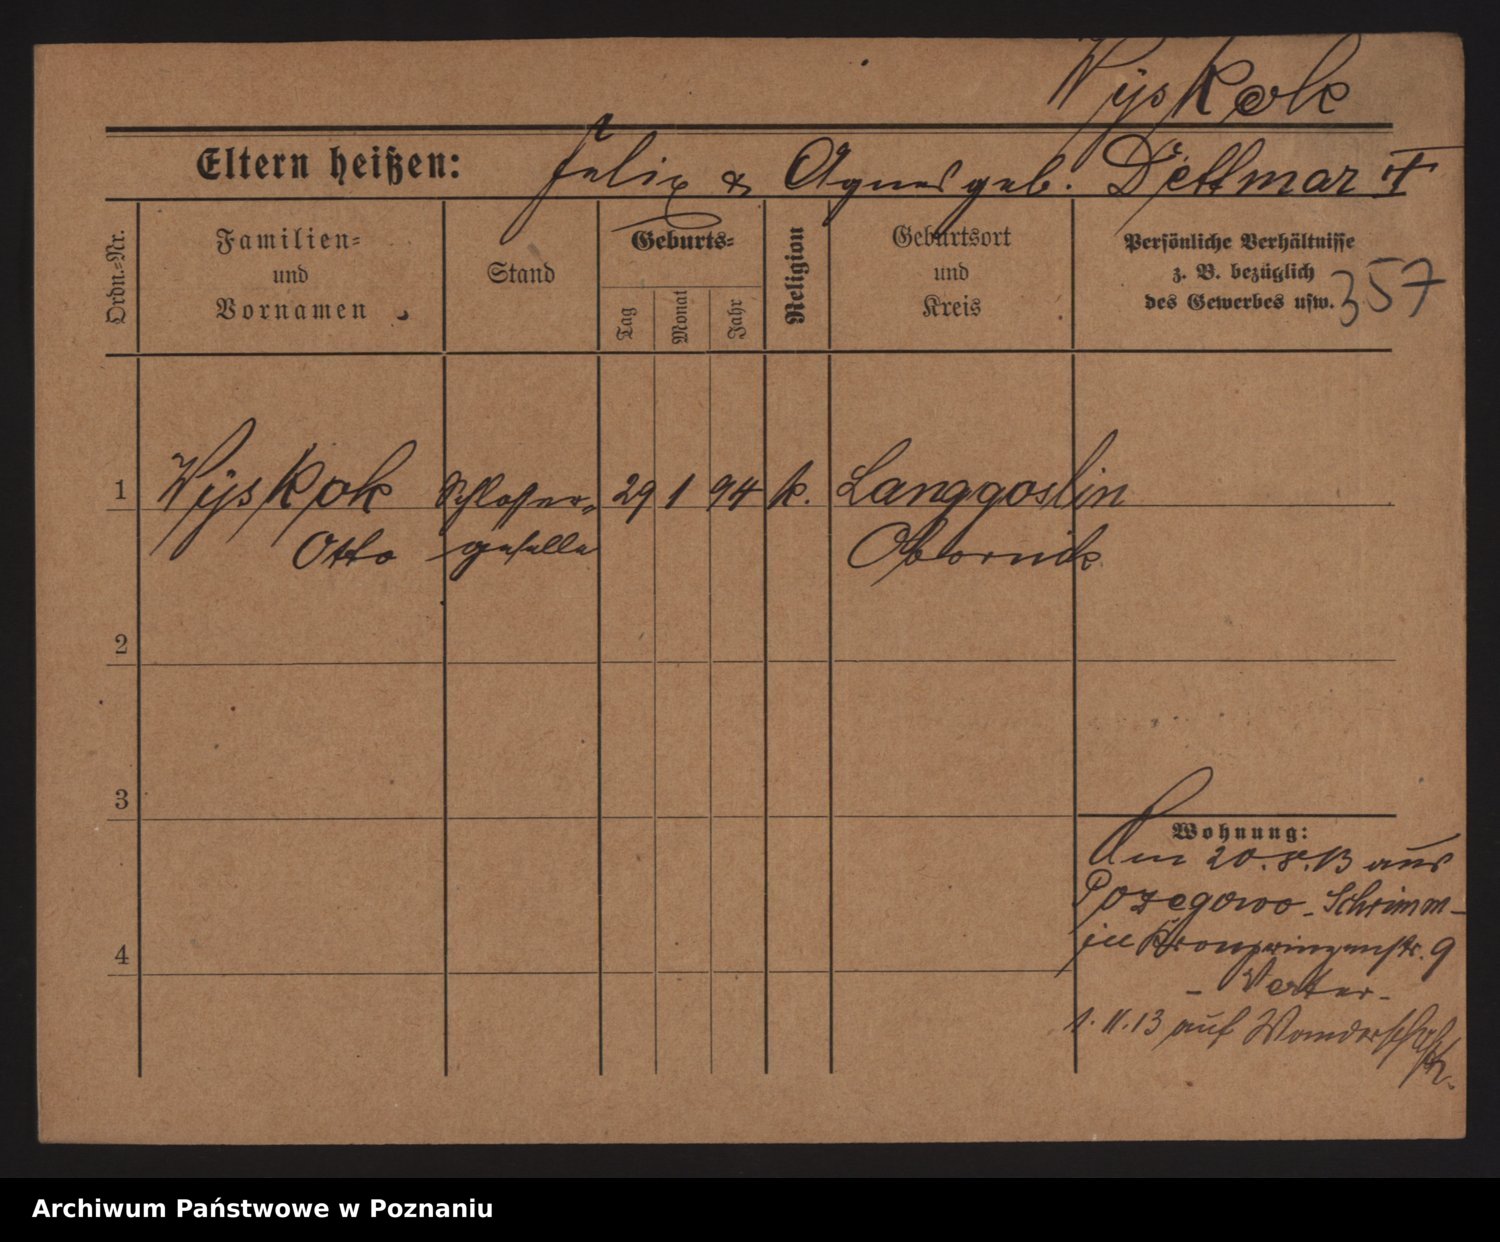 Wyskok
Eltern heißen: Felix & Agnes geb. Dettmar †
Ordn.-Nr.
Familien-
und
Vornamen
Stand
Geburts-
Tag
Monat
Jahr
Religion
Geburtsort
und
Kreis
Persönliche Verhältnisse
z. B. bezüglich
des Gewerbes usw.
357
1 Wyskok Schlosser- 29 1 94 k. Langgoslin
Otto geselle Obornik
2
3
4
Wohnung:
Am 20.8.13 aus
Pozegowo - Schrimm -
Kronprinzenstr. 9
- Vater -
1.11.13 auf Wanderschaft.
Archiwum Państwowe w Poznaniu